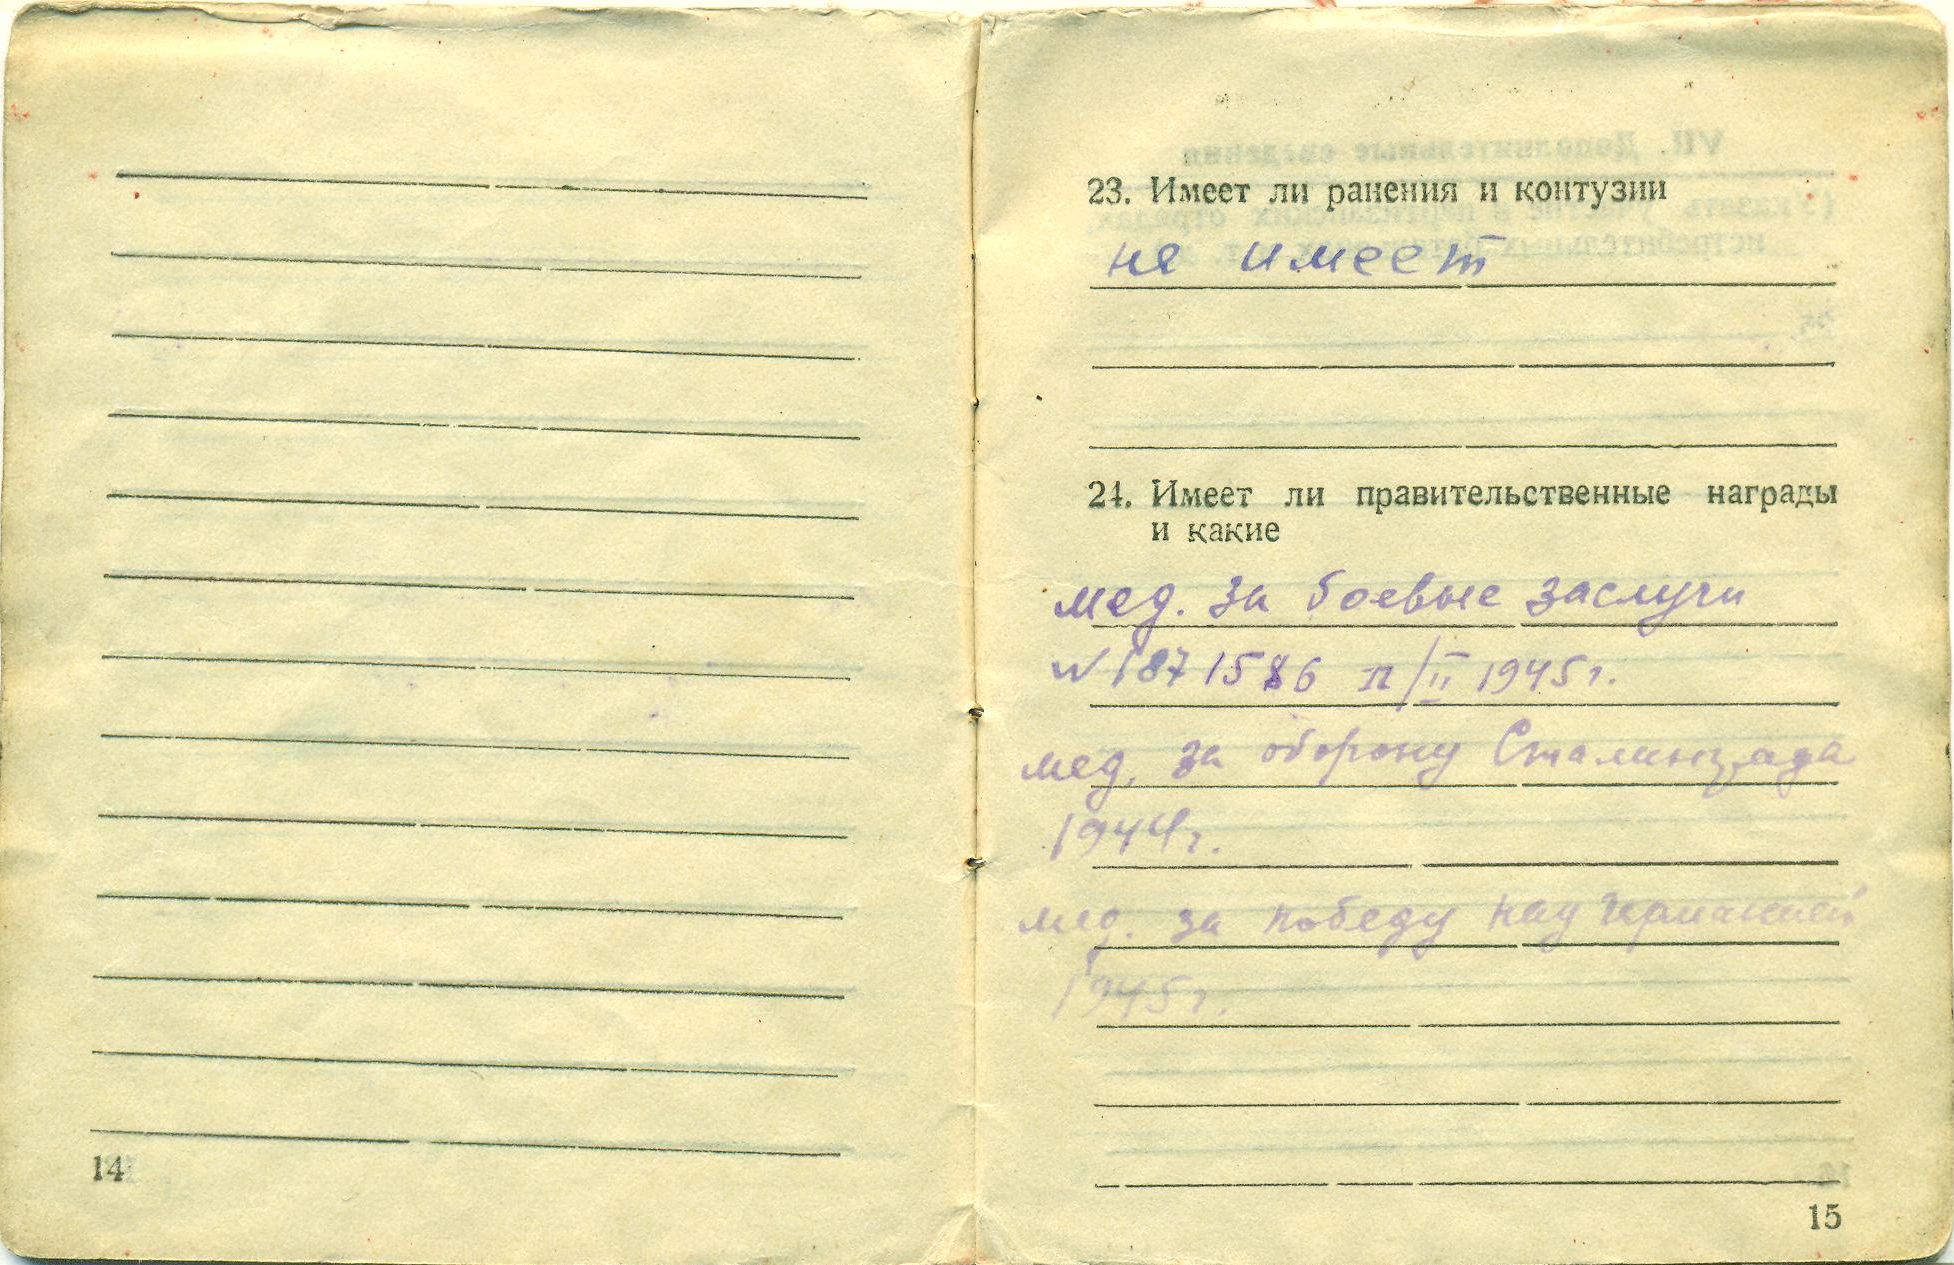 23. Имеет ли ранения и контузии
не имеет
24. Имеет ли правительственные награды
и какие
мед. за боевые заслуги
N 1871586 п/II 1945г.
мед. за оборону Сталинграда
1944г.
мед. за победу над германией
1945г.
14
15